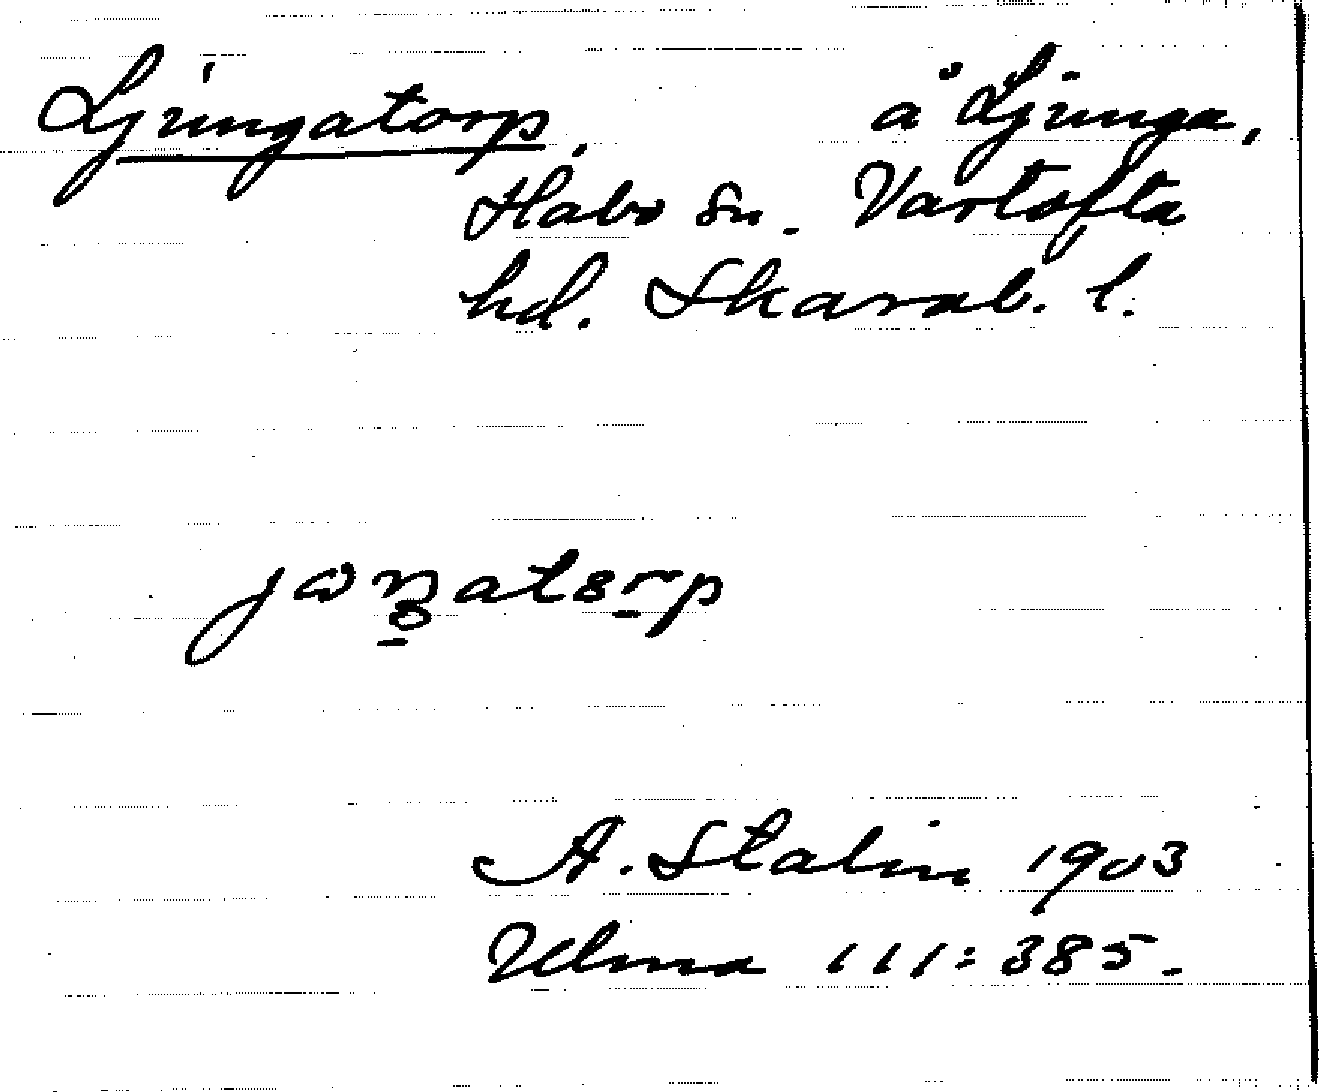 Ljungatorp, å Ljunga,
Habo sn. Vartofta
hd. Skarab. l.
A. Stalin 1903
Ulma 111:385.